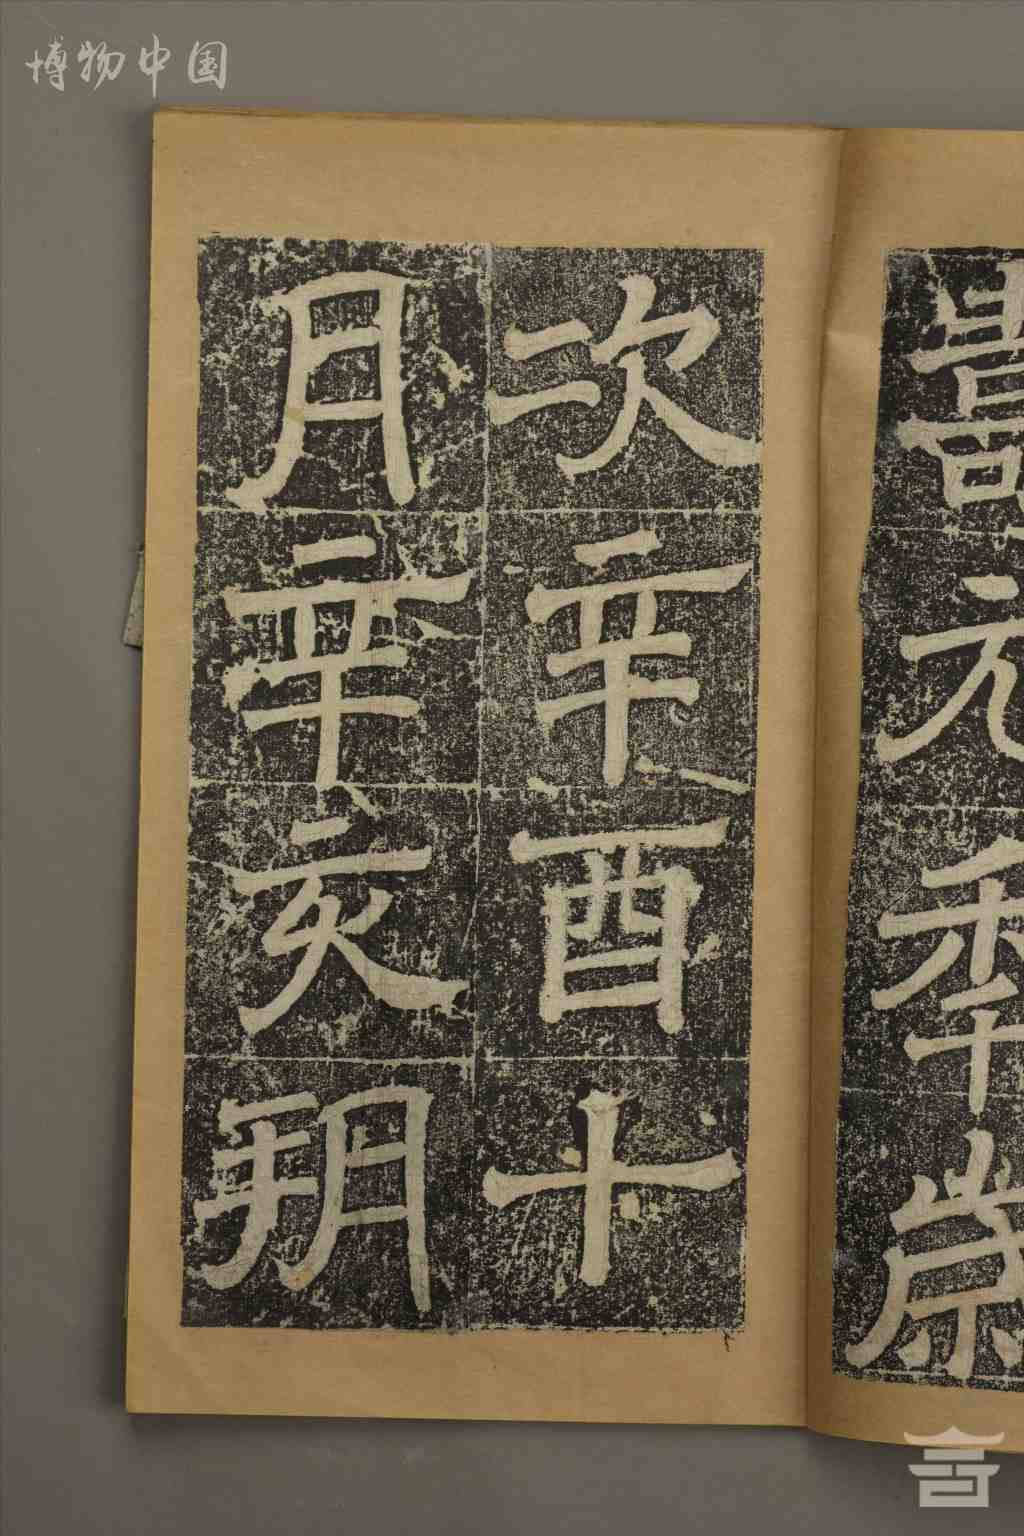 博物中国
壽元年歲
次辛酉十
月辛亥朔